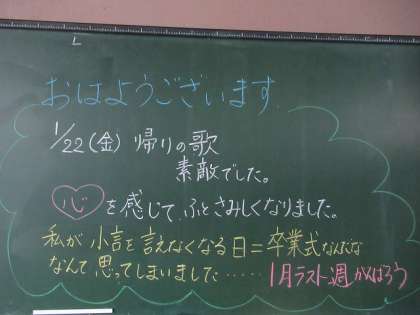 おはようございます.
1/22(金) 帰りの歌
素敵でした。
心を感じて、ふとさみしくなりました。
私が小言を言えなくなる日=卒業式なんだな
なんて思ってしまいました……
1月ラスト週がんばろう